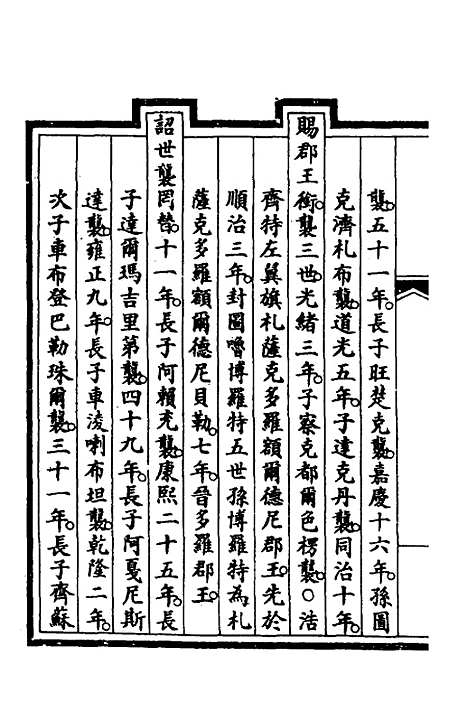 襲五十一年。長子旺楚克襲。嘉慶十六年。孫圖
克濟札布襲。道光五年。子達克丹襲。同治十年。
賜郡王銜。襲三世。光緒三年。子察克都爾色楞襲。○浩
齊特左翼旗札薩克多羅額爾德尼郡王。先於
順治三年。封圖嚕博羅特五世孫博羅特為札
薩克多羅額爾德尼貝勒。七年。晉多羅郡王。
詔世襲罔替。十一年。長子阿賴充襲。康熙二十五年。長
子達爾瑪吉里第襲。四十九年。長子阿戛尼斯
達襲。雍正九年。長子車淩喇布坦襲。乾隆二年。
次子車布登巴勒珠爾襲。三十一年。長子齊蘇